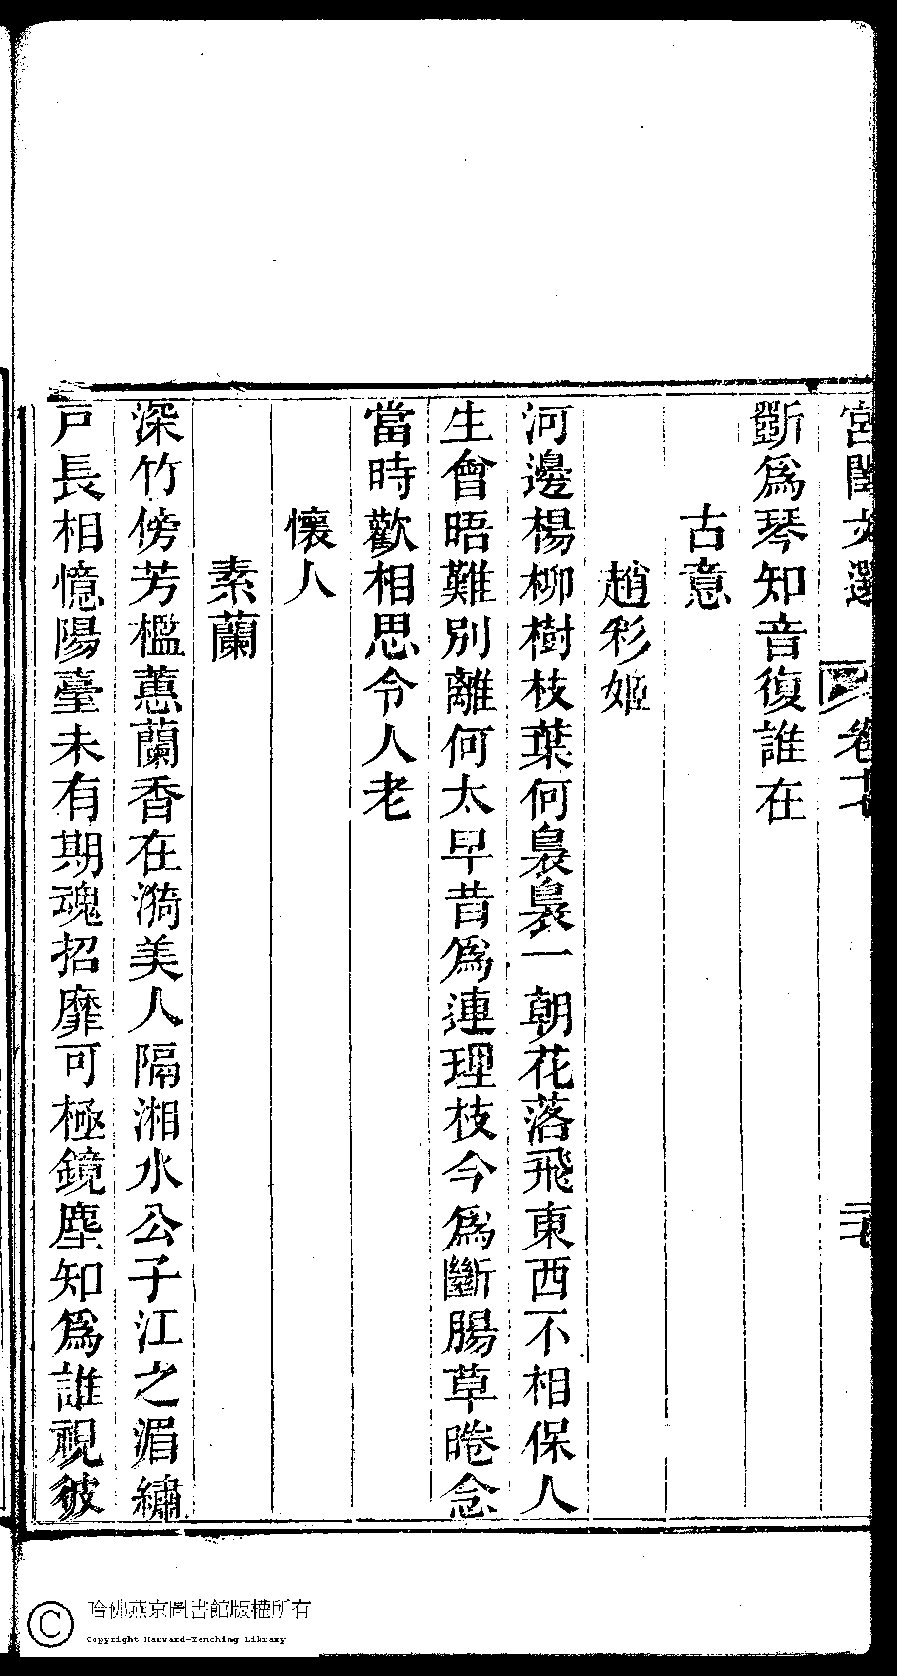 宮閨文選 卷十七 二七
斵爲琴知音復誰在
古意
趙彩姬
河邊楊柳樹枝葉何裊裊一朝花落飛東西不相保人
生會晤難別離何太早昔爲連理枝今爲斷腸草睠念
當時歡相思令人老
懷人
素蘭
深竹傍芳檻蕙蘭香在漪美人隔湘水公子江之湄繡
戸長相憶陽臺未有期魂招靡可極鏡塵知爲誰視彼
哈佛燕京圖書館版權所有
Copyright Harvard-Yenching Library